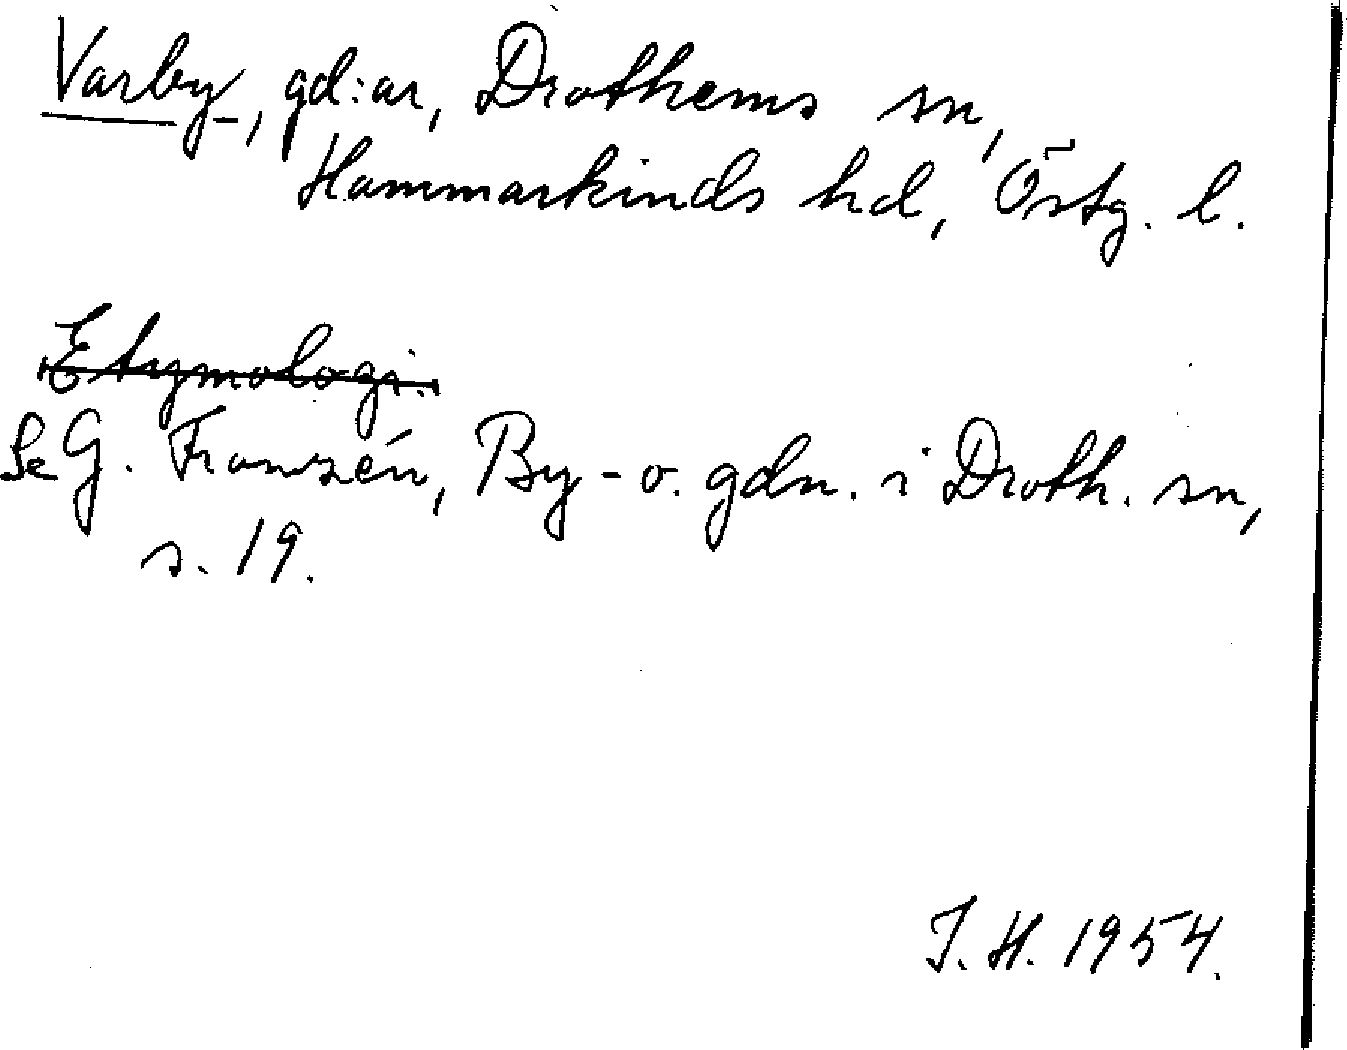 Varby, gd:ar, Drothems sn,
Hammarkinds hd, Östg. l.
Etymologi.
Se G. Franzén, By- o. gdn. i Droth. sn,
s. 19.
J. H. 1954.